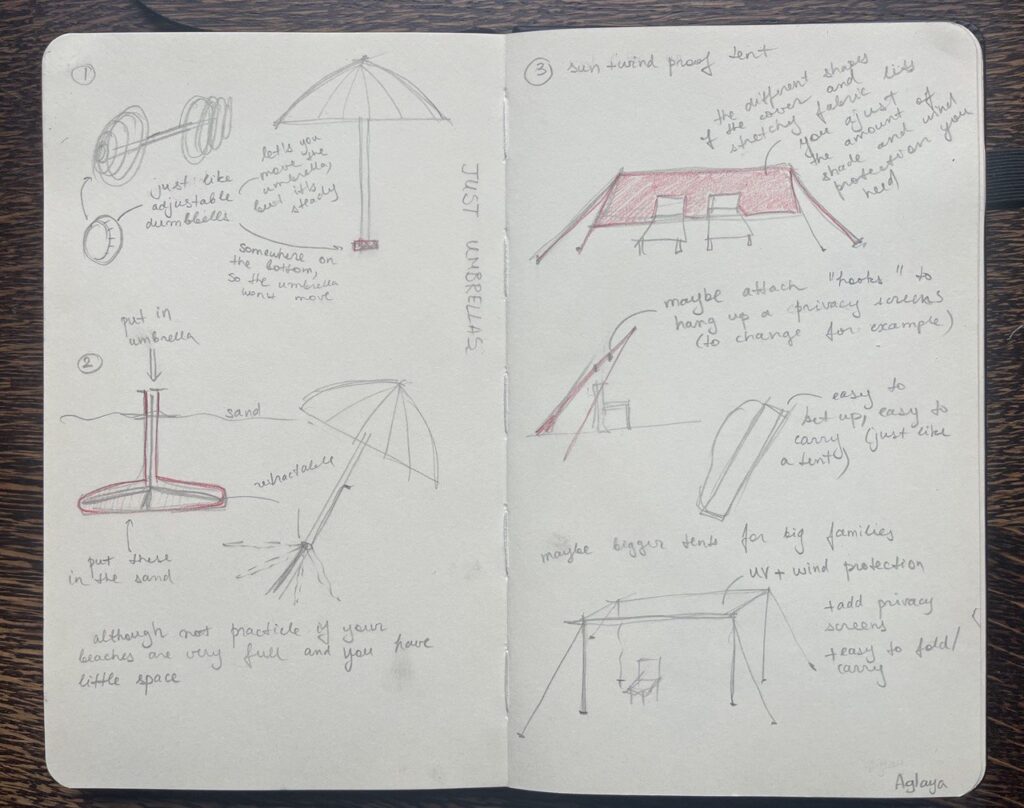 1
just like
adjustable
dumbbells
let's you
move the
umbrella,
but it's
steady
somewhere on
the bottom,
so the umbrella
won't move
JUST UMBRELLAS
put in
umbrella
2
sand
put these
in the sand
retractable
although not practicle if your
beaches are very full and you have
little space
3 sun + wind proof tent
the different shapes
of the cover and
stretchy fabric lets
you ajust of
the amount
shade and wind
protection you
need
maybe attach "hooks" to
hang up a privacy screens
(to change for example)
easy to
set up, easy to
carry (just like
a tent)
maybe bigger tents for big families
UV + wind protection
+ add privacy
screens
+ easy to fold/
carry
Aglaya